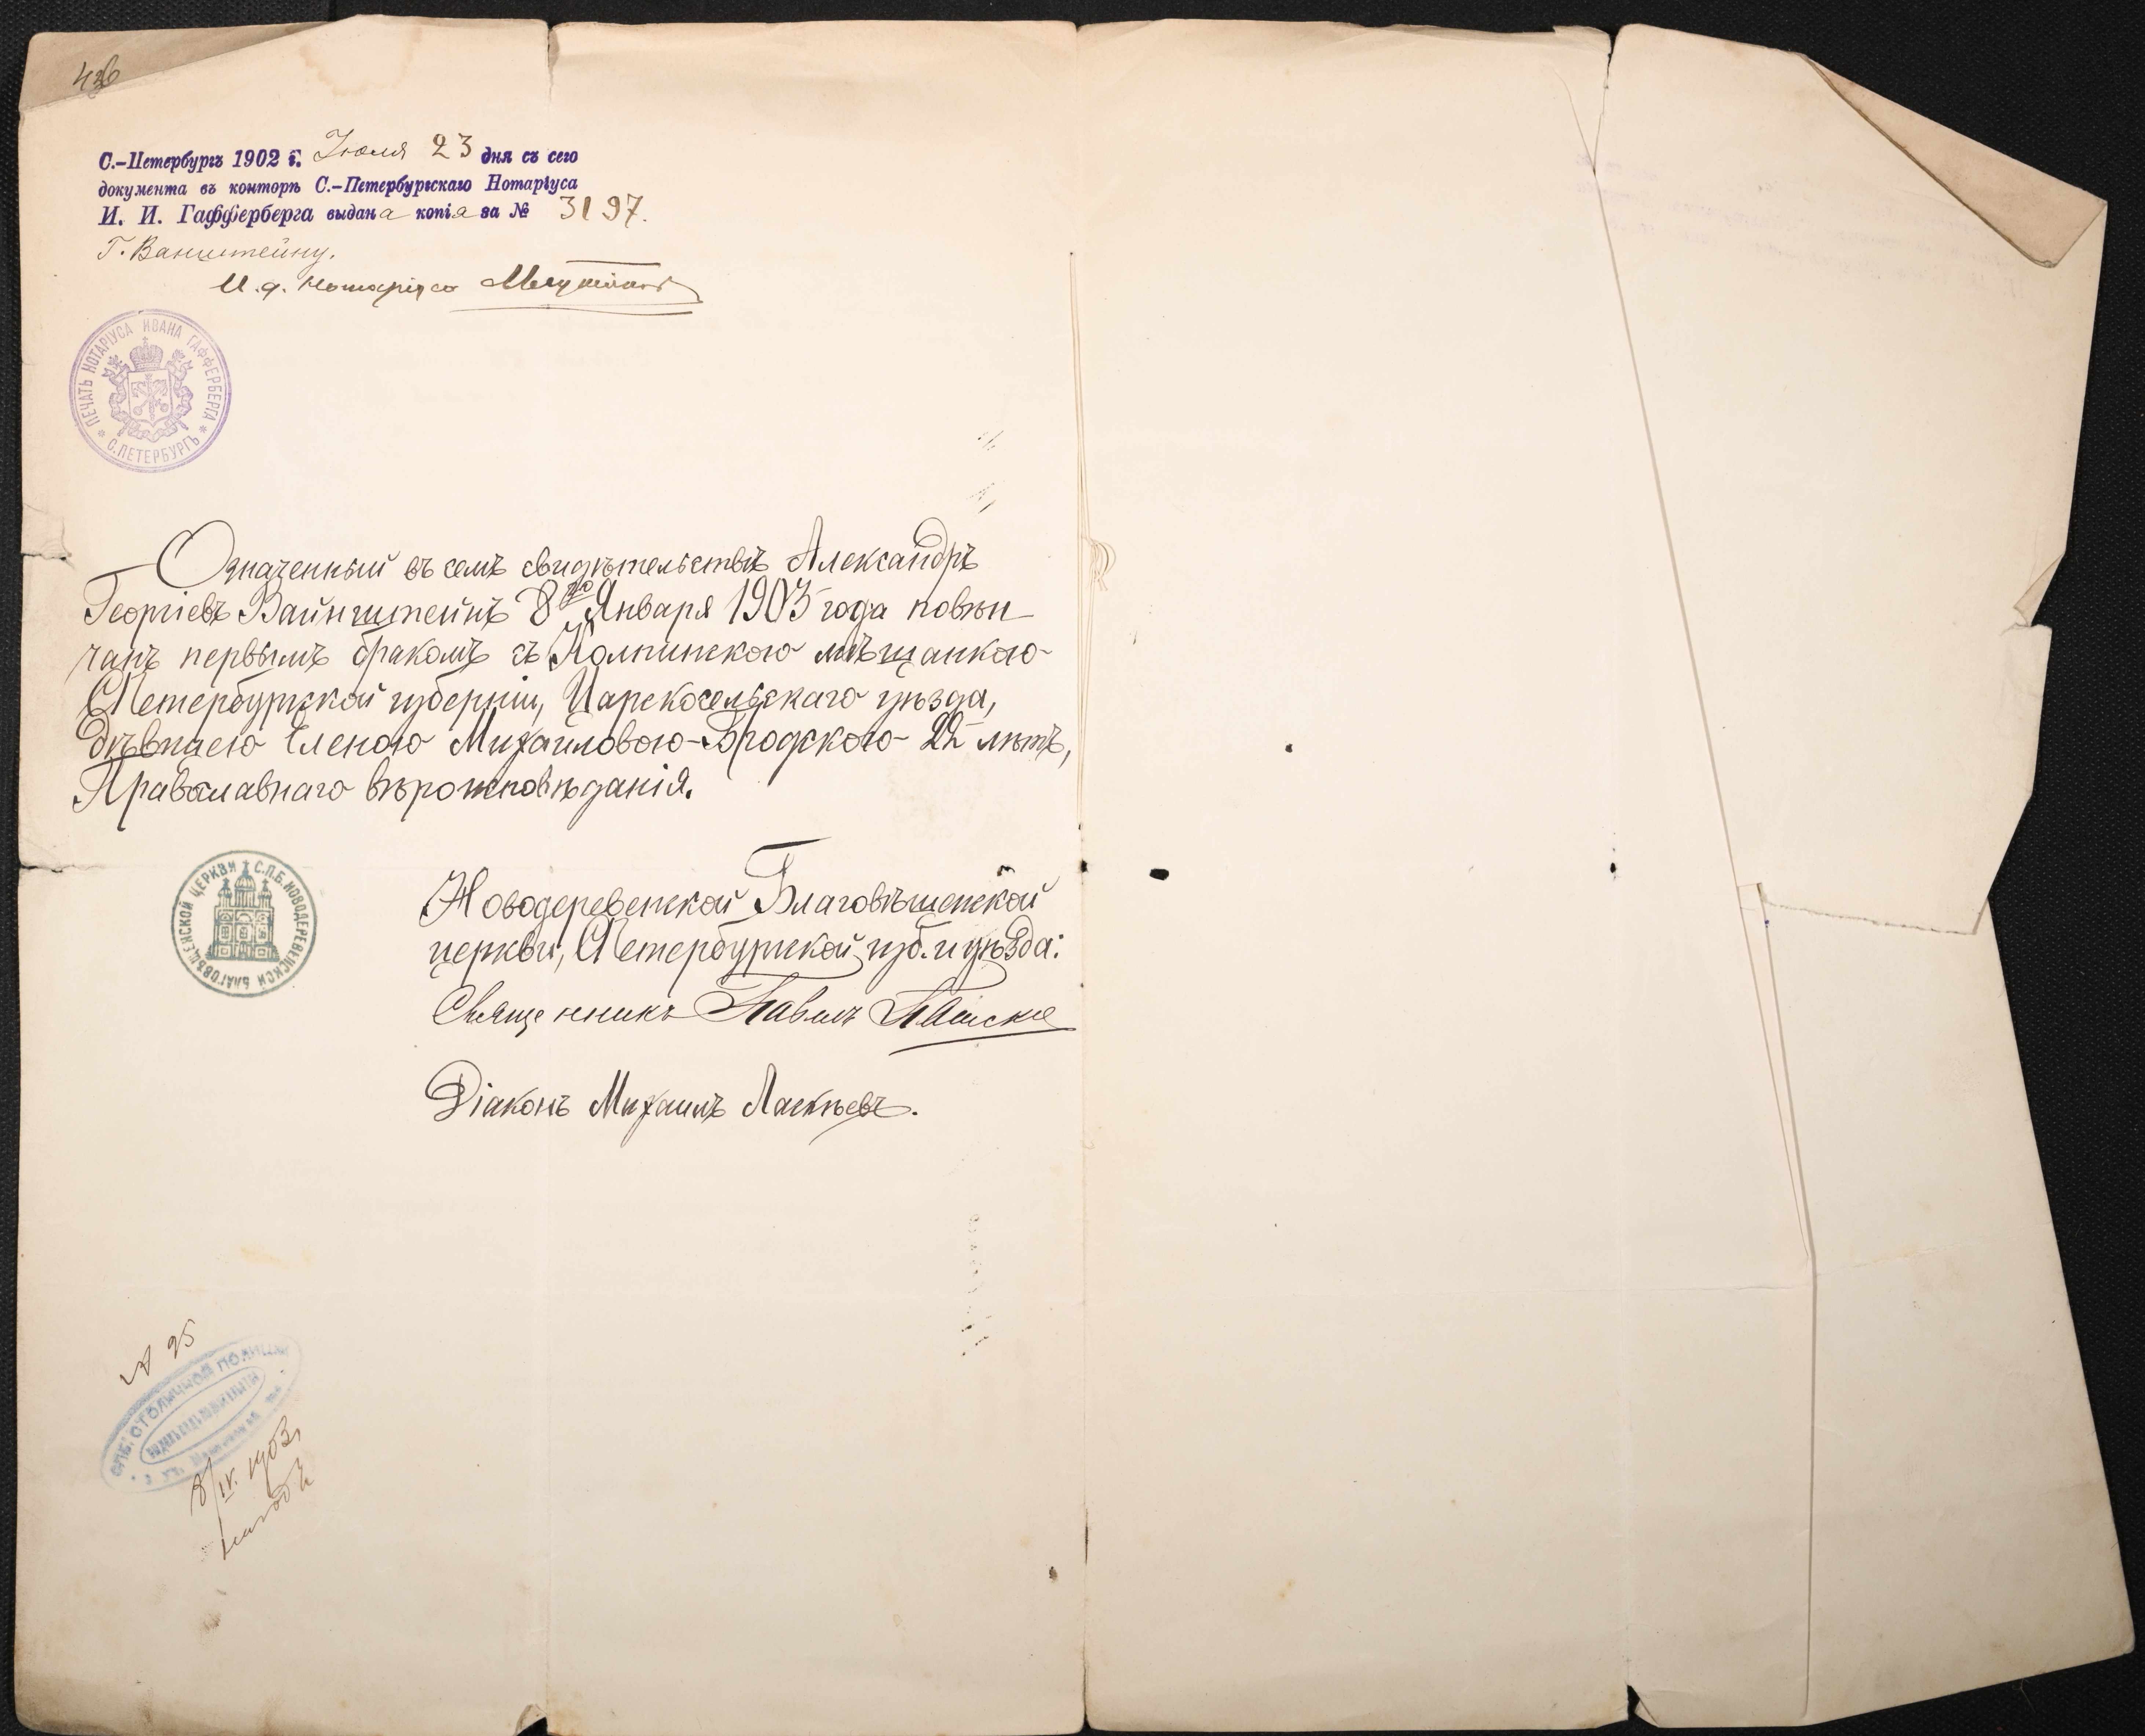 426
С.-Петербургъ 1902 г. Іюля 23 дня съ сего
документа въ конторѣ С.-Петербургскаго Нотаріуса
И. И. Гафферберга выдана копія за № 3197.
Г. Ванштейну.
И. д. Нотаріуса
ПЕЧАТЬ НОТАРІУСА ИВАНА ГАФФЕРБЕРГА * С.ПЕТЕРБУРГЪ *
Означенный въ семъ свидѣтельствѣ Александръ
Георгіевъ Вайнштейнъ 8го Января 1903 года повѣн-
чанъ первымъ бракомъ съ Колпинскою мѣщанкою
СПетербургской губерніи, Царскосельскаго уѣзда,
дѣвицею Еленою Михайловою Бродскою 22 лѣтъ,
Православнаго вѣроисповѣданія.
С.П.Б. НОВОДЕРЕВЕНСКОЙ БЛАГОВѢЩЕНСКОЙ ЦЕРКВИ
Новодеревенской Благовѣщенской
церкви, СПетербургской губ. и уѣзда:
Священникъ Павелъ
Діаконъ Михаилъ Ласкѣевъ.
№ 95
СПБ. СТОЛИЧНОЙ ПОЛИЦІИ
8/IV. 1903